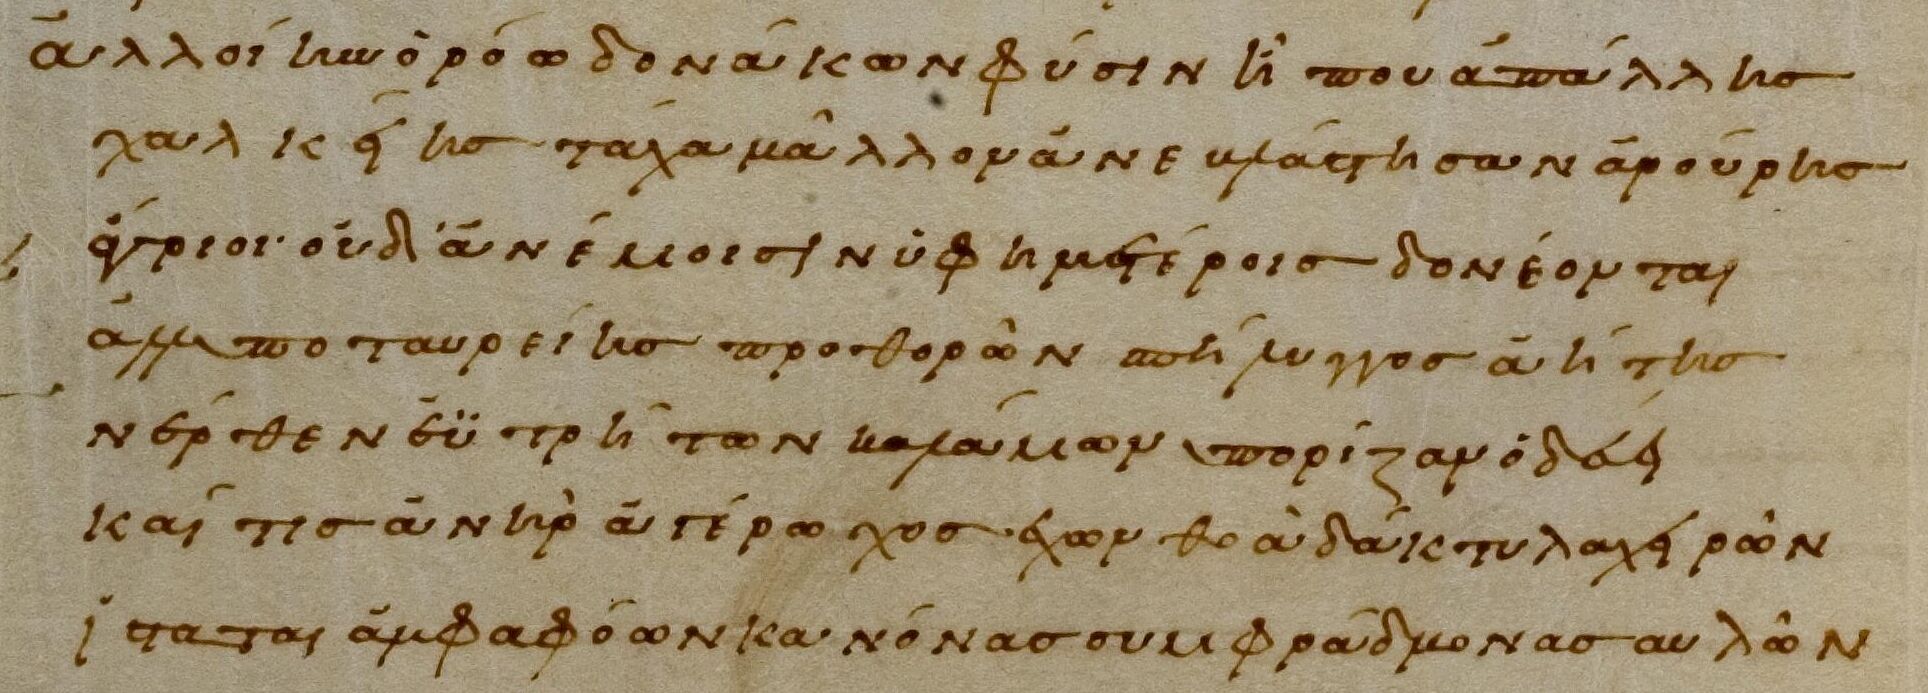 ἀλλοίην ὁρόω δονάκων φύσιν ἦ που ἀπ ἄλλης
χαλκείης τάχα μᾶλλον ἀνεβλάστησαν ἀρούρης
ἄγριοι· οὐδ' ἀνέμοισιν ὑφ ἡμετέροις δονέονται
ἀλλ ὑπο ταυρείης προθορὼν σπήλυγγος ἀήτης
νέρθεν ἐϋτρήτων καλάμων ὑπο ρίζαν ὁδεύει
καί τις ἀνὴρ ἀγέρωχος ἔχων θοὰ δάκτυλα χειρῶν
ἵσταται ἀμφαφόων κανόνας συμφράδμονας αυλῶν